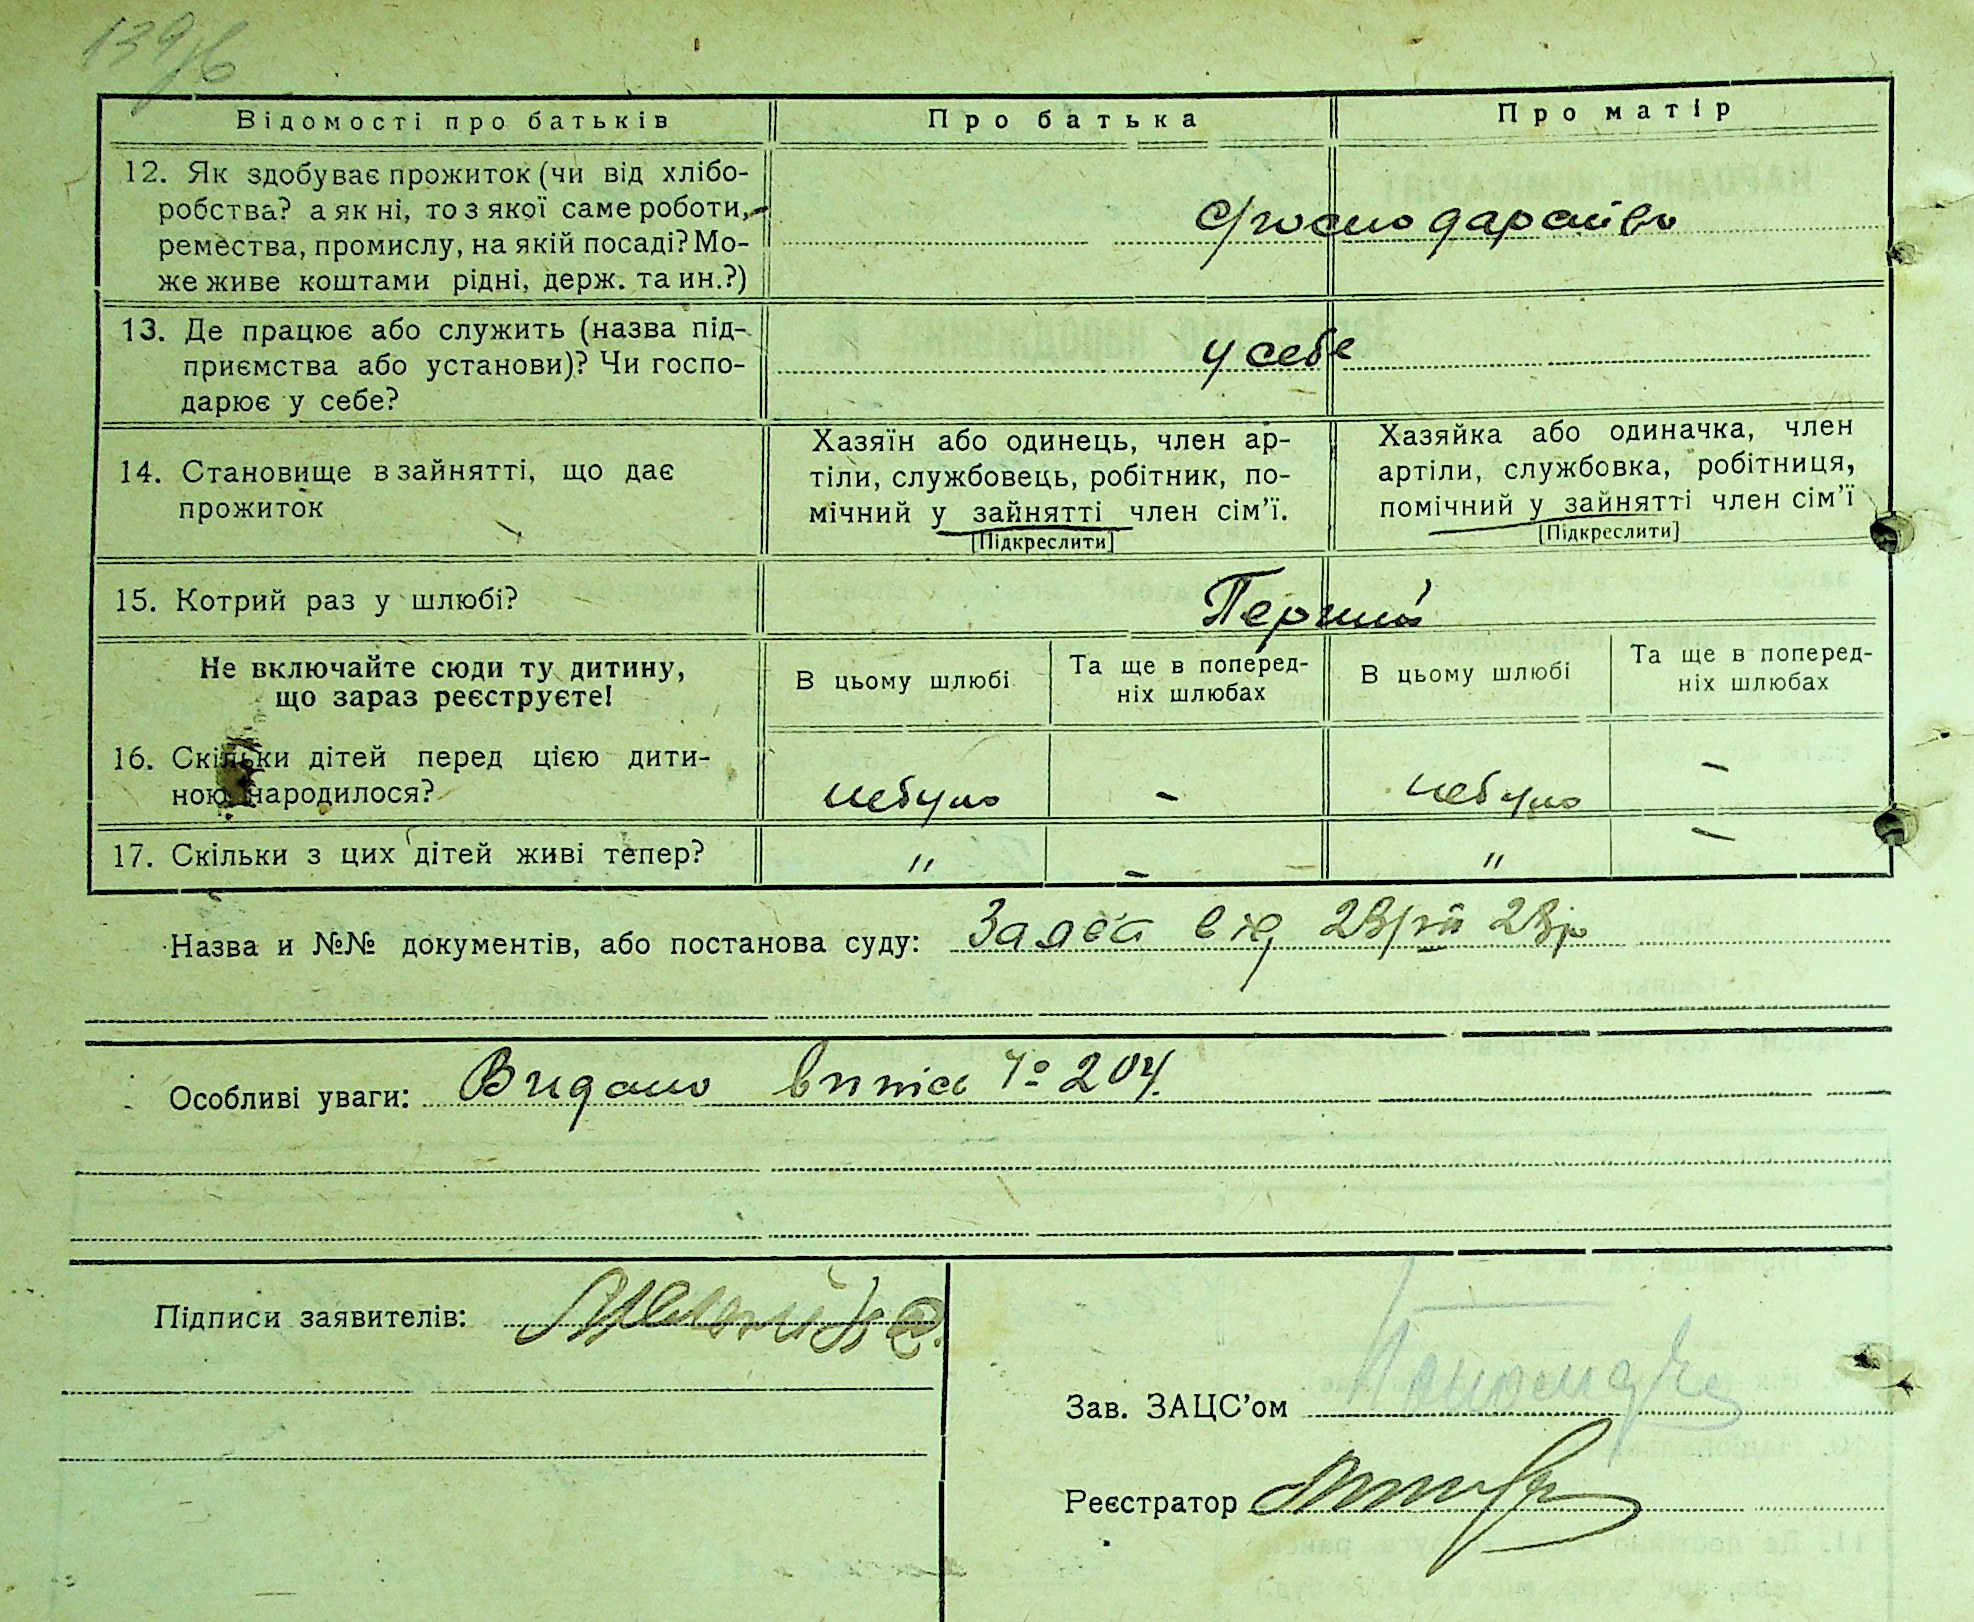 139/6
Відомості про батьків
Про батька
Про матір
12. Як здобуває прожиток (чи від хлібо-
робства? а як ні, то з якої саме роботи,
ремества, промислу, на якій посаді? Мо-
же живе коштами рідні, держ. та ин.?)
с/господарство
13. Де працює або служить (назва під-
приємства або установи)? Чи госпо-
дарює у себе?
у себе
14. Становище в зайнятті, що дає
прожиток
Хазяїн або одинець, член ар-
тіли, службовець, робітник, по-
мічний у зайнятті член сім'ї.
[Підкреслити]
Хазяйка або одиначка, член
артіли, службовка, робітниця,
помічний у зайнятті член сім'ї
[Підкреслити]
15. Котрий раз у шлюбі?
Перший
Не включайте сюди ту дитину,
що зараз реєструєте!
В цьому шлюбі
Та ще в поперед-
ніх шлюбах
В цьому шлюбі
Та ще в поперед-
ніх шлюбах
16. Скільки дітей перед цією дити-
ною народилося?
небуло - небуло -
17. Скільки з цих дітей живі тепер?
" - " -
Назва и №№ документів, або постанова суду: Заява від
Особливі уваги: Видано випис № 204.
Підписи заявителів:
Зав. ЗАЦС'ом
Реєстратор